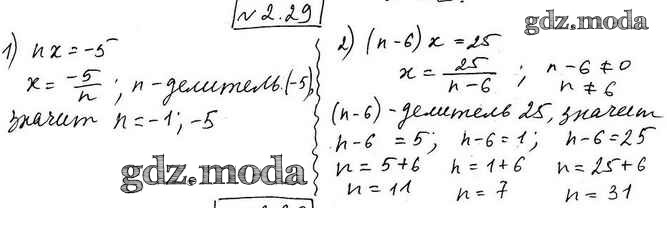 № 2.29
gdz.moda
1) nx = -5
x = -5/n ; n - делитель (-5),
значит n = -1; -5
gdz.moda
2) (n-6) x = 25
x = 25/(n-6) ; n-6 ≠ 0
n ≠ 6
(n-6) - делитель 25, значит
n-6 = 5; n-6 = 1; n-6 = 25
n = 5+6 n = 1+6 n = 25+6
n = 11 n = 7 n = 31